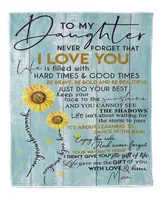 TO MY
Daughter
NEVER FORGET THAT
I LOVE YOU
Life is filled with
HARD TIMES & GOOD TIMES
BE BRAVE, BE BOLD AND BE BEAUTIFUL
JUST DO YOUR BEST
Keep your
face to the sunshine
AND YOU CANNOT SEE
THE SHADOWS
Life isn't about waiting
for the storm to pass
IT'S ABOUT LEARNING TO
DANCE IN THE RAIN
never forget
YOUR WAY BACK HOME
I DIDN'T GIVE YOU the gift of life
Life gave me the GIFT of YOU
WITH LOVE
Mom